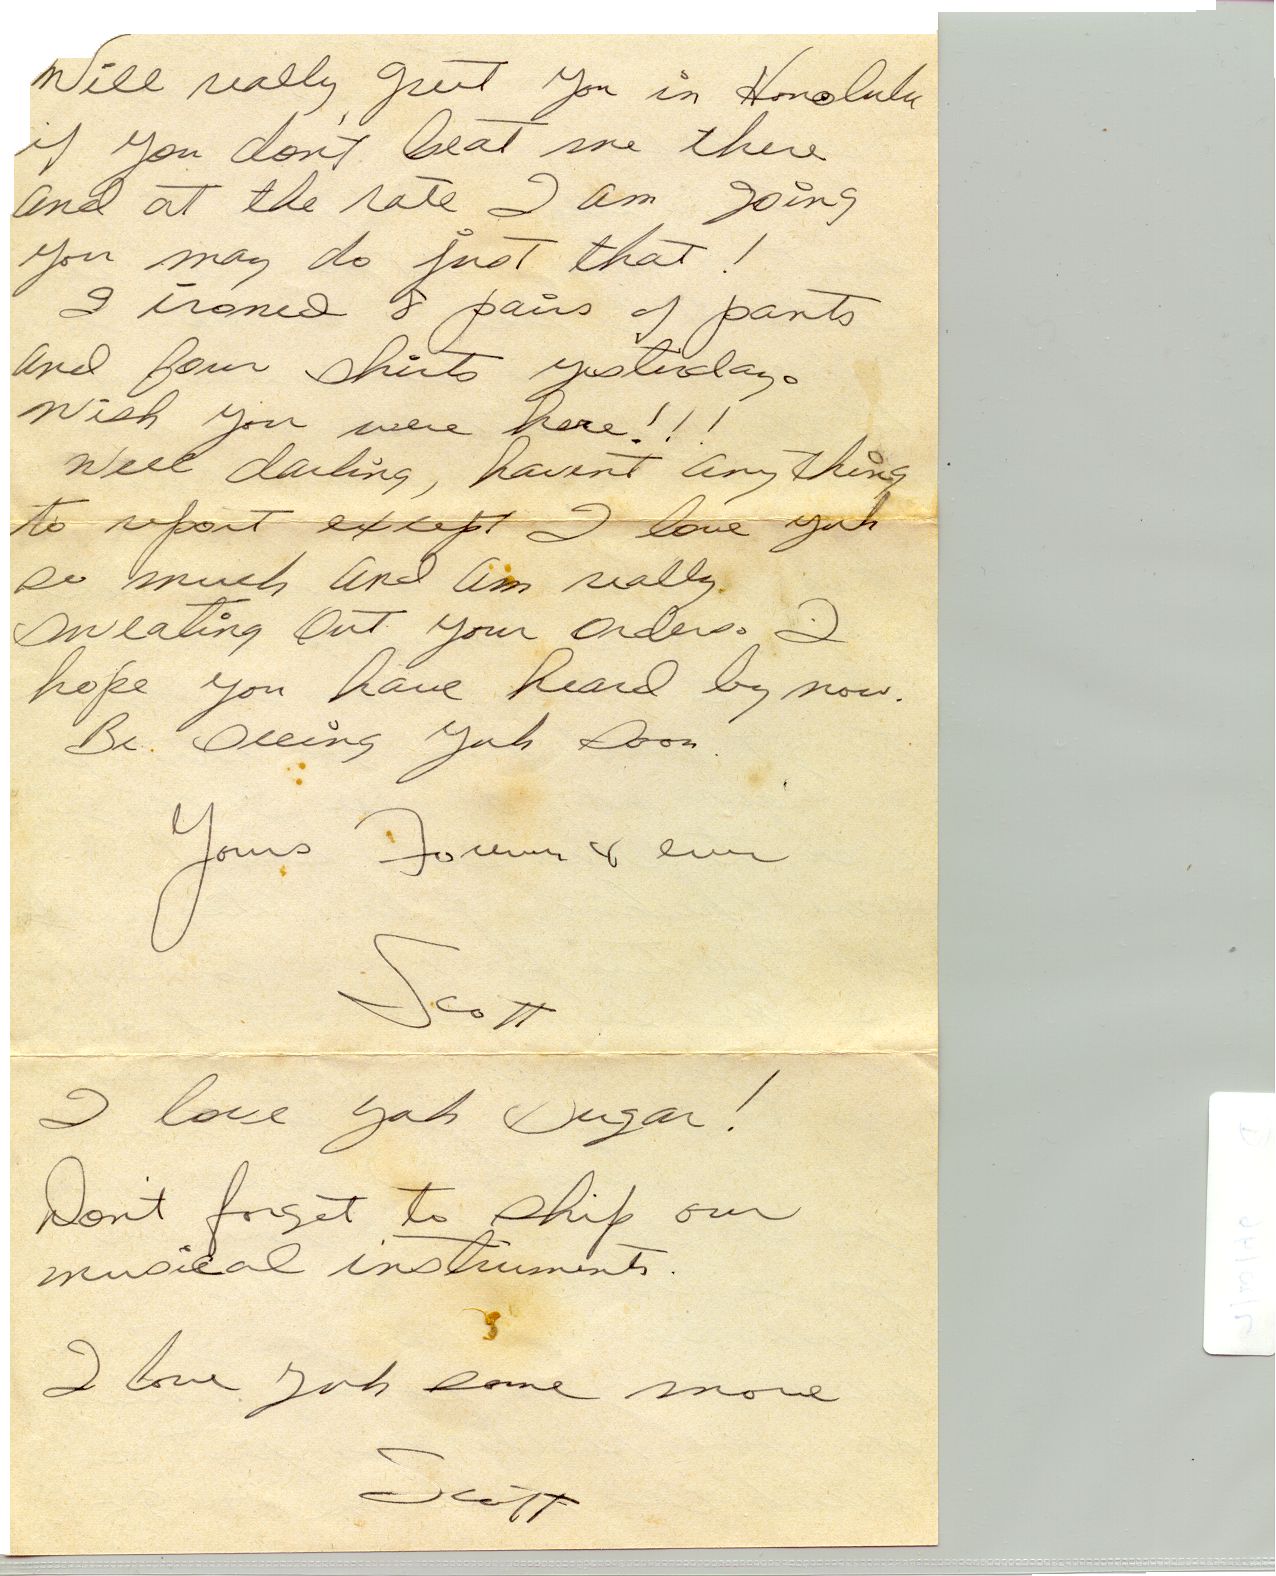 Will really greet you in Honolulu
if you don't beat me there
and at the rate I am going
you may do just that!
I ironed 8 pairs of pants
and four shirts yesterday.
Wish you were here!!!
Well darling, haven't anything
to report except I love yuh
so much and am really
sweating out your orders. I
hope you have heard by now.
Be seeing yuh soon.
Yours Forever & ever
Scott
I love yuh sugar!
Don't forget to ship our
musical instruments.
I love yuh some more
Scott